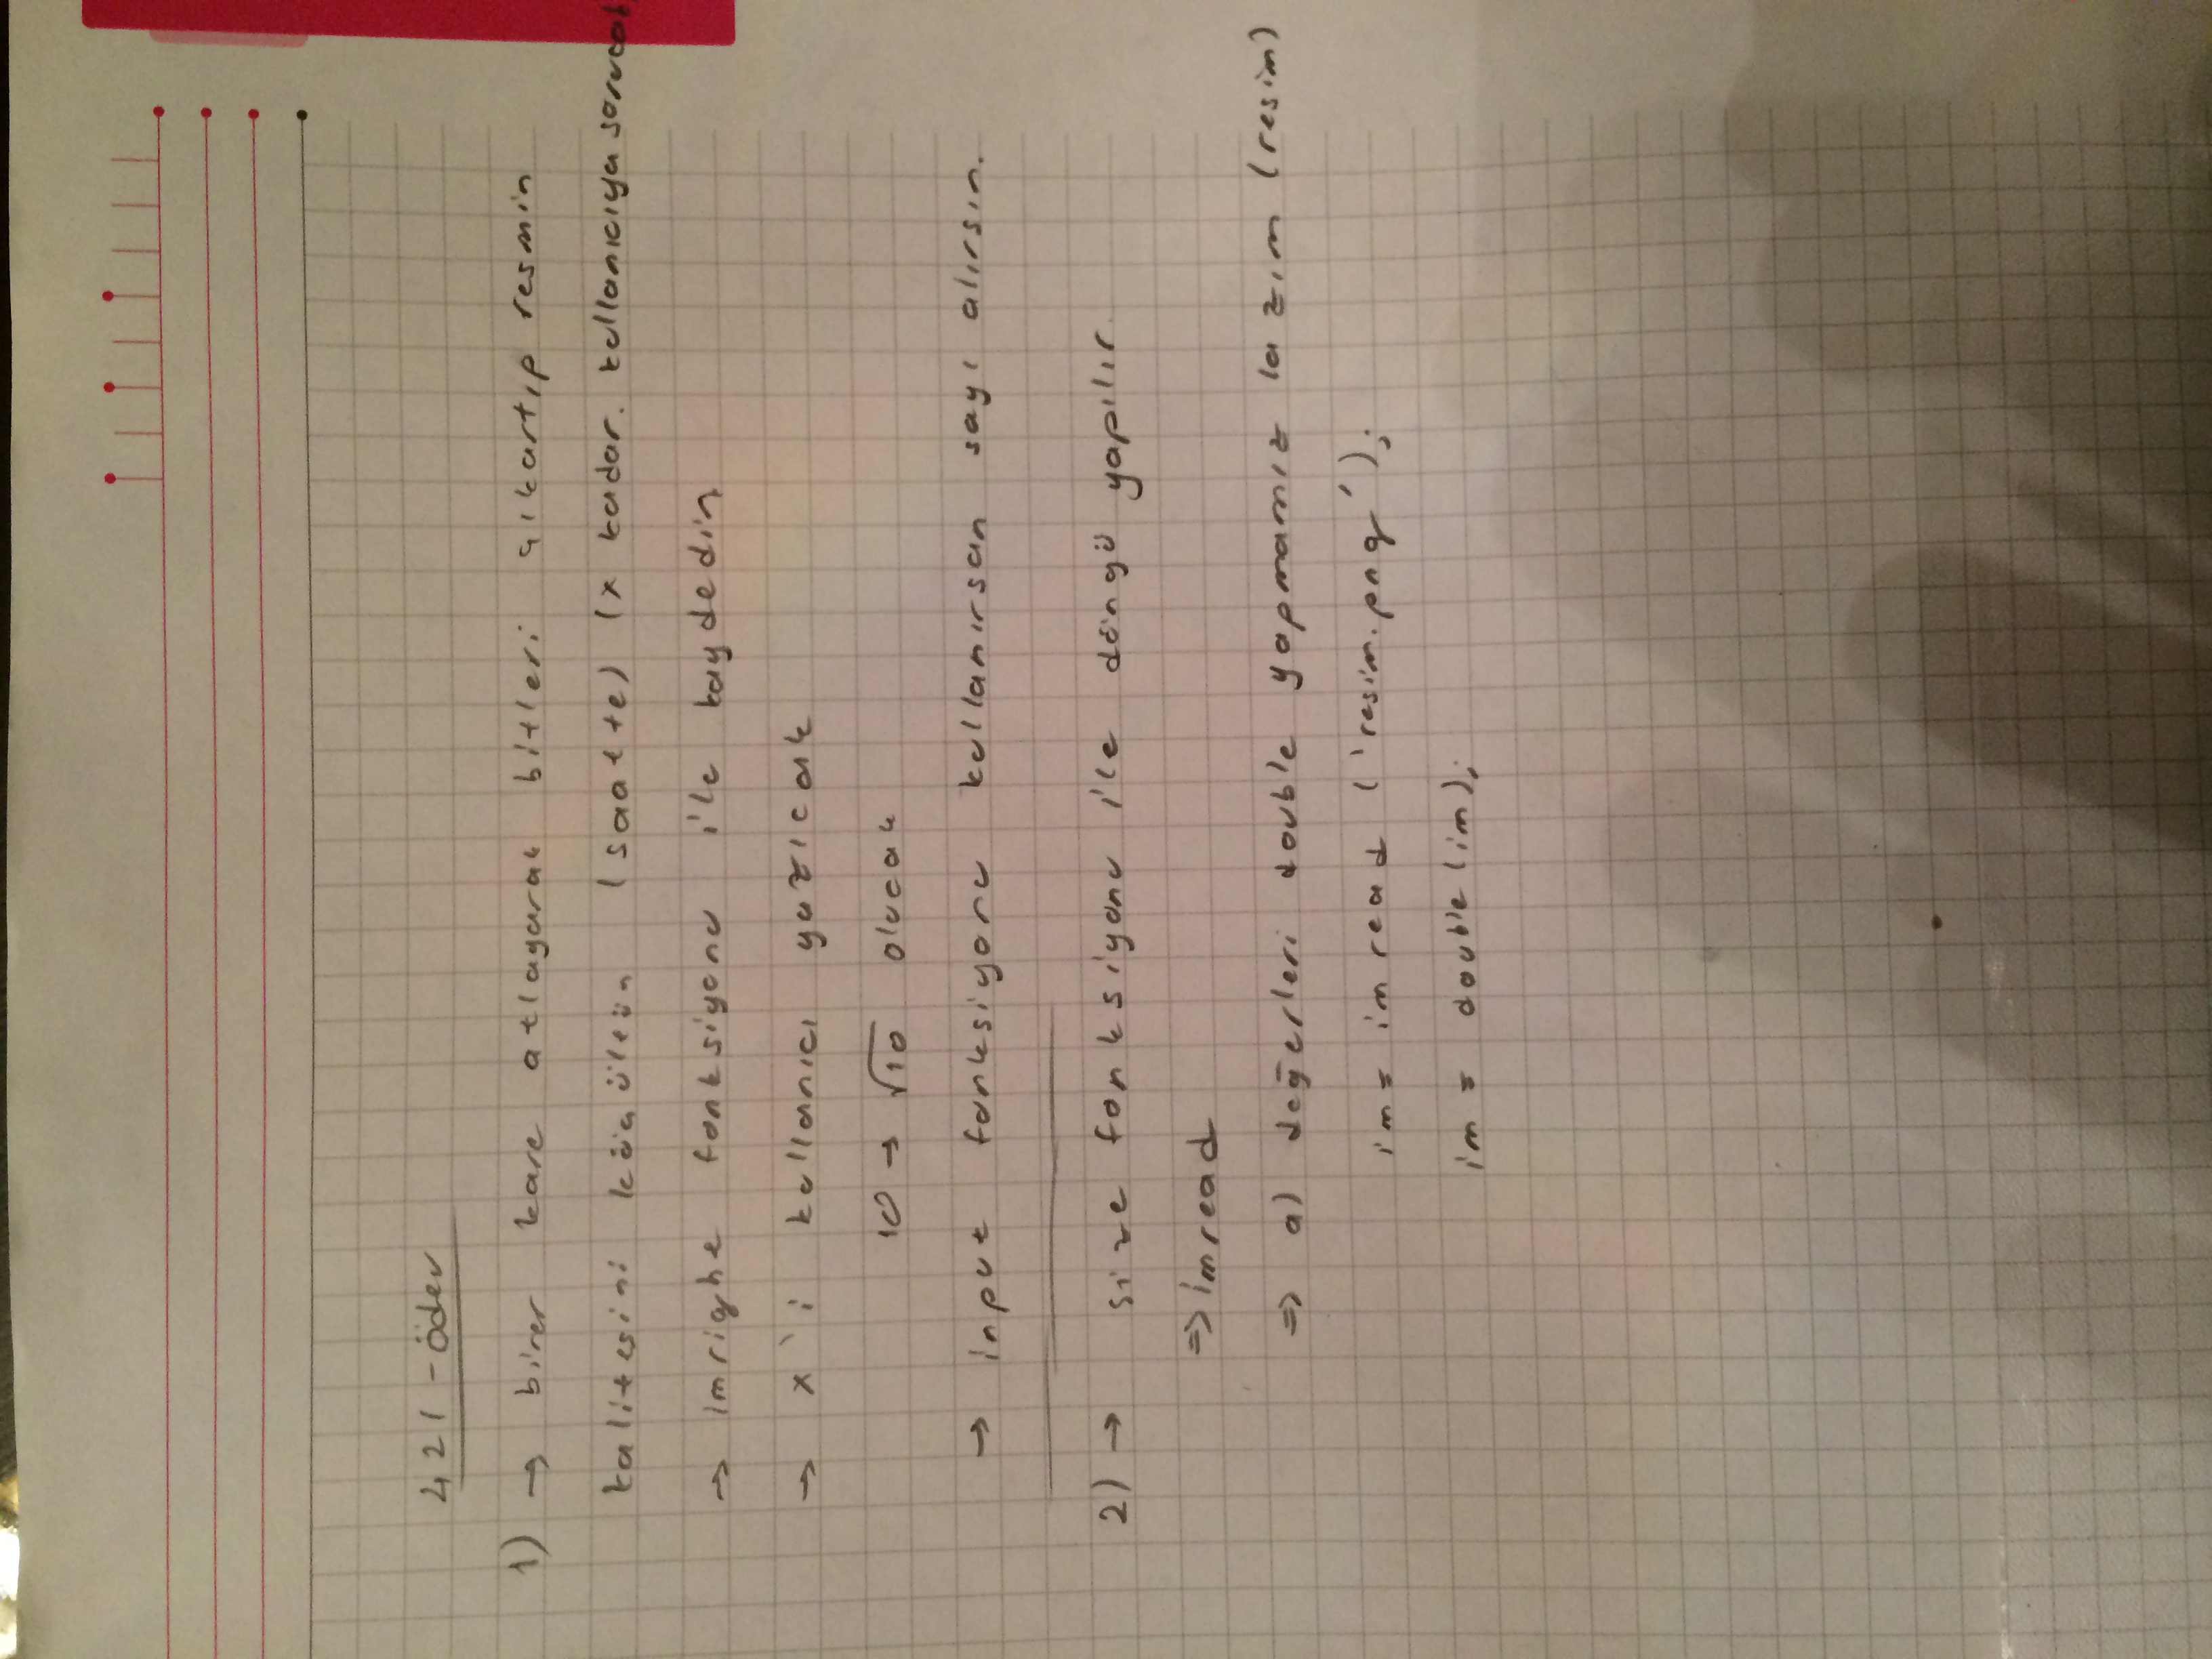 421 - ödev
1) → birer kare atlayarak bitleri çıkartıp resmin
kalitesini küçültün (saatte) (x kadar. kullanıcıya sorucak
→ imrighe fonksiyonu ile kaydedin
→ x'i kullanıcı yazıcak
10 → √10 olucak
→ input fonksiyonu kullanırsan sayı alırsın.
2) → size fonksiyonu ile döngü yapılır.
⇒ imread
⇒ a) değerleri double yapmamız lazım (resim)
im = imread ('resim.png');
im = double (im);